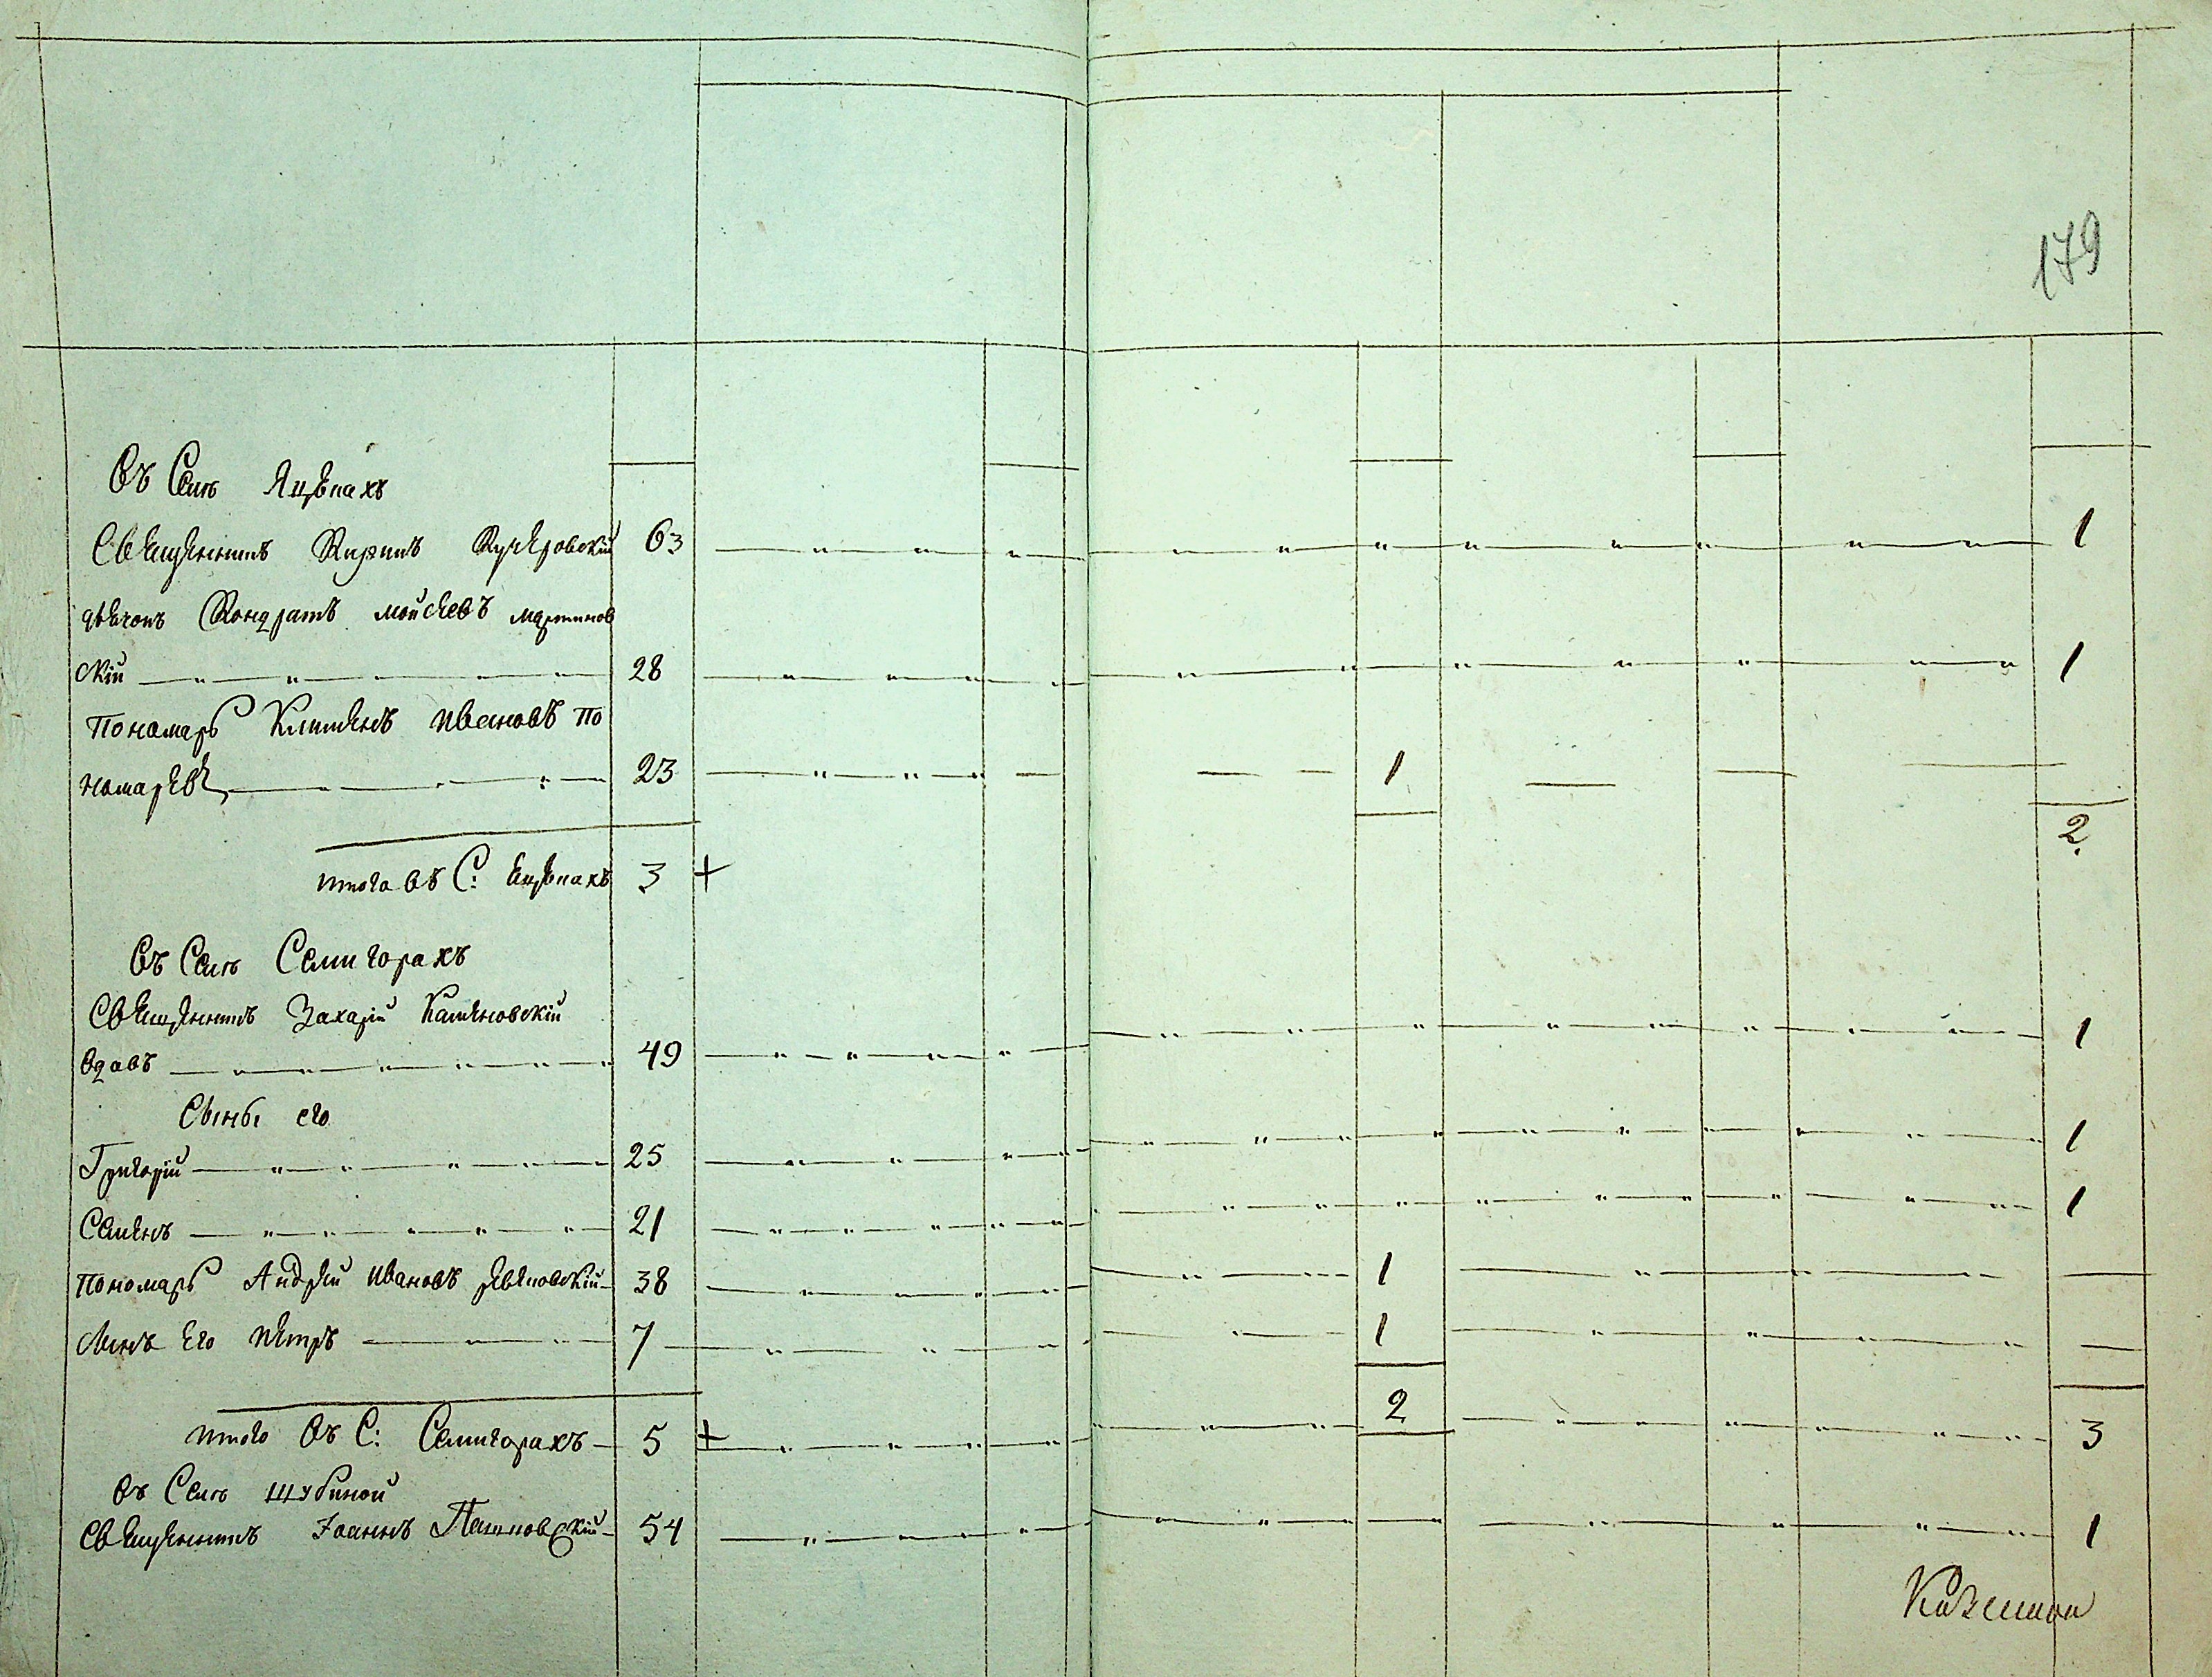 179
Въ Селѣ Яцькахъ
Священникъ Кирилъ Кучеровскій 63 1
дьячокъ Кондратъ мойсеевъ мартинов
скій 28 1
Пономарь Климентъ ивановъ По
номаревъ 23 1
итого въ С: Яцькахъ 3 + 2
Въ Селѣ Семигорахъ
Священникъ Захарій Каменовскій
вдовъ 49 1
Сыны его
Григорій 25 1
Семенъ 21 1
Пономарь Андрей ивановъ 38 1
сынъ его петръ 7 1
итого Въ С: Семигорахъ 5 + 2 3
Въ Селѣ шубиной
священникъ Іоаннъ 54 1